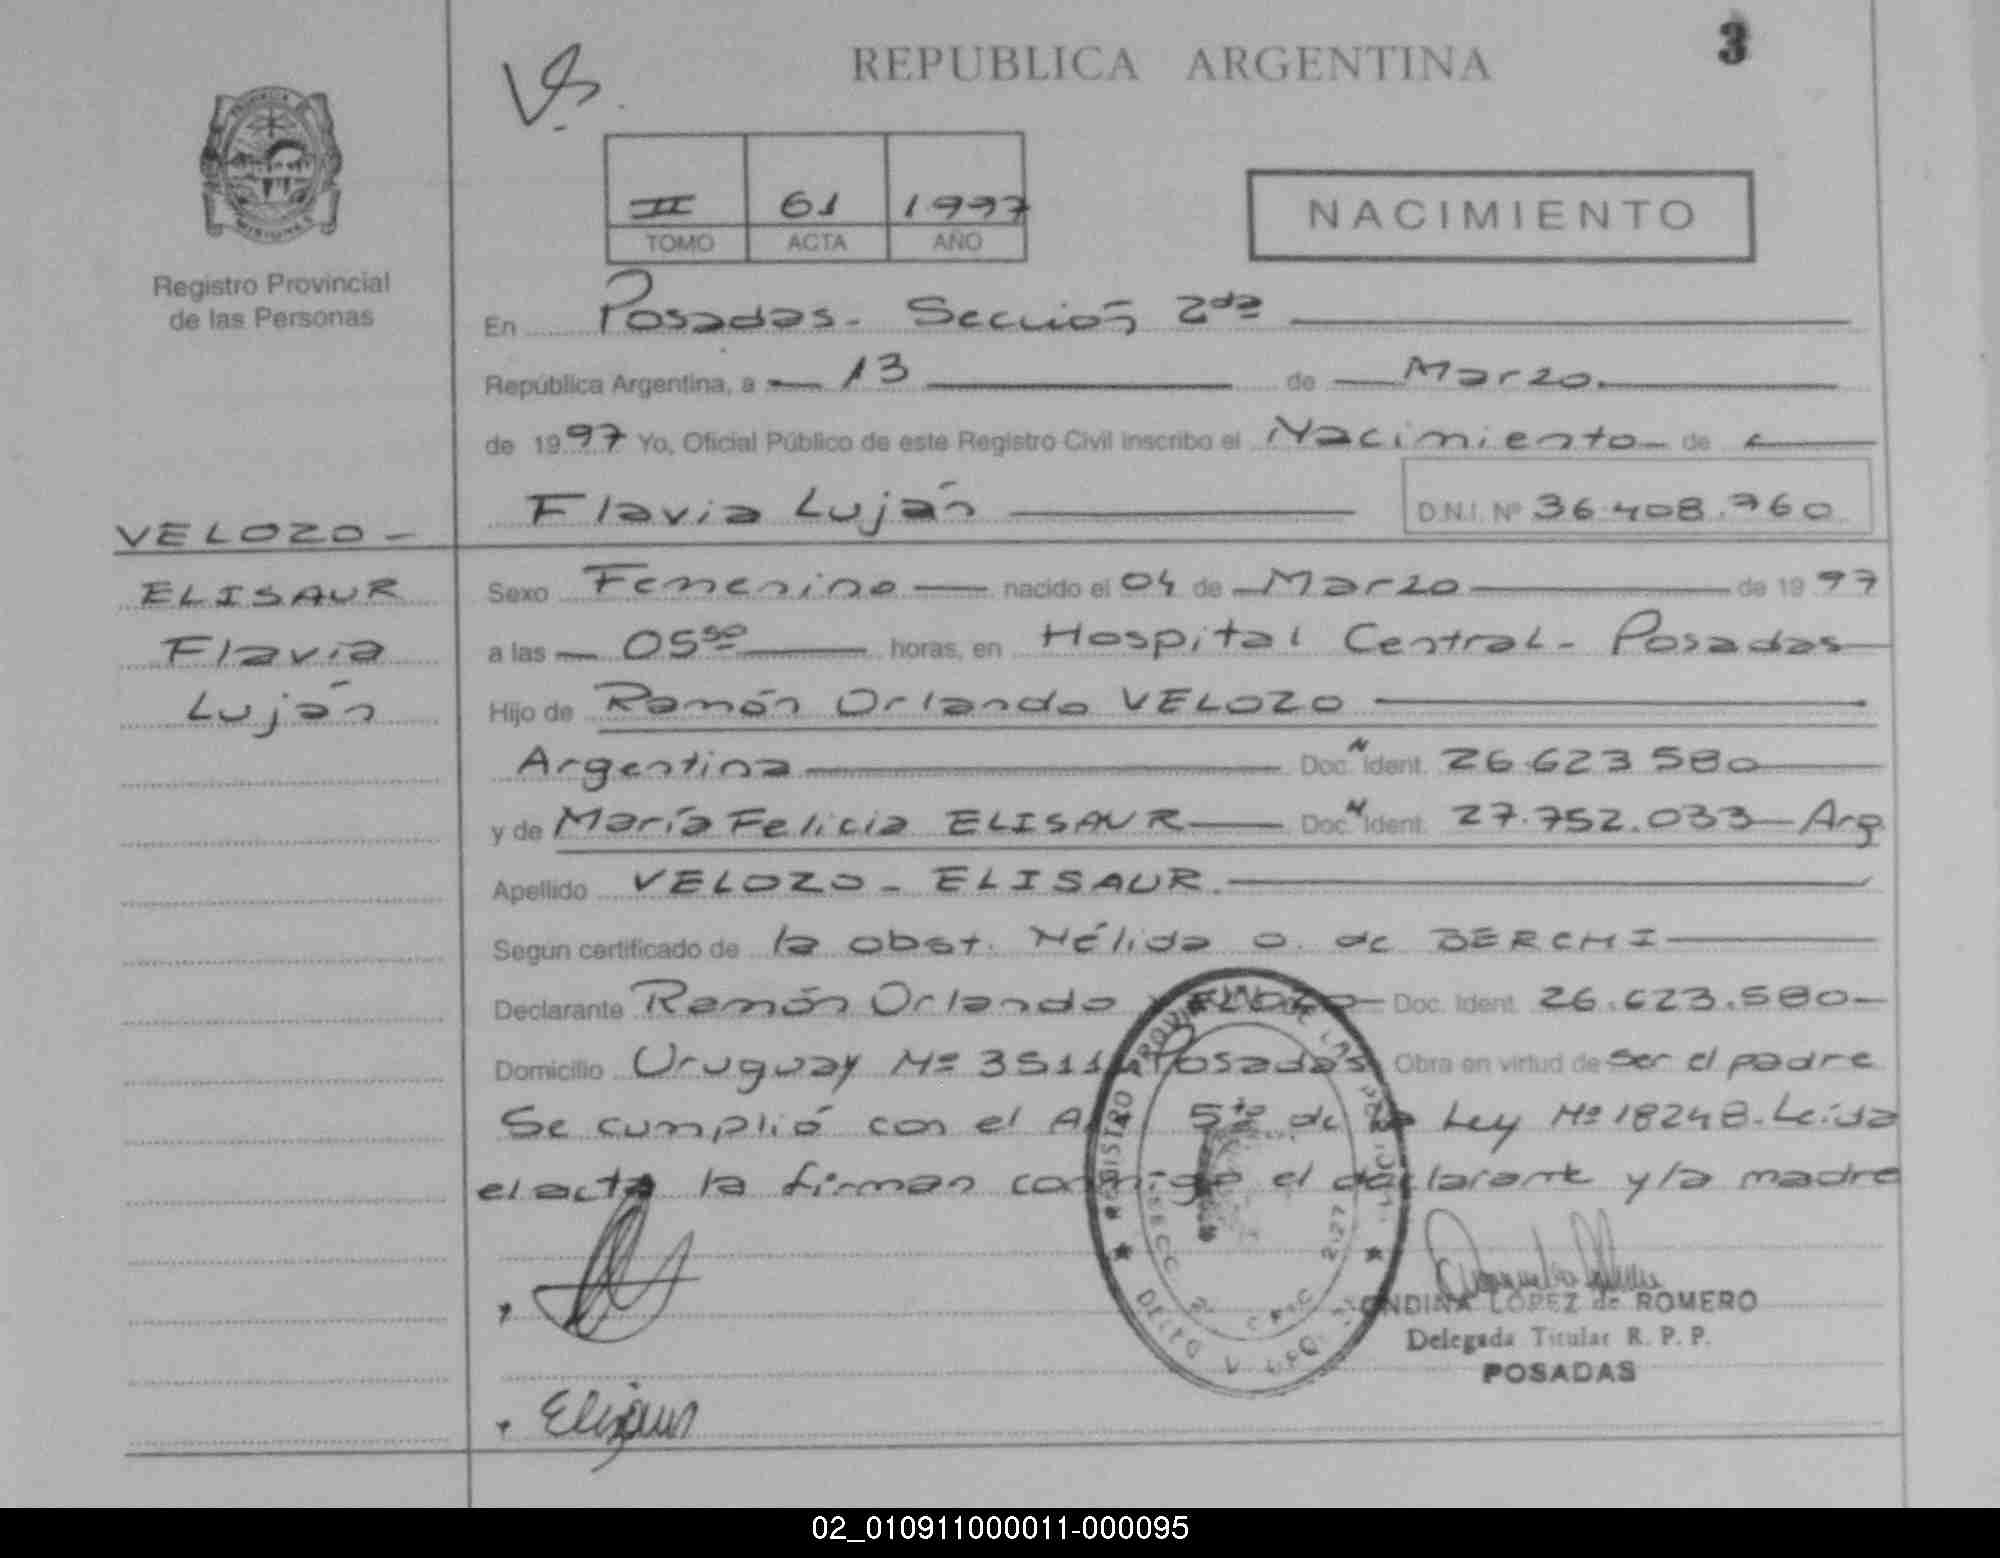 REPUBLICA ARGENTINA
3
II 61 1997
TOMO ACTA AÑO
NACIMIENTO
PROVINCIA
MISIONES
Registro Provincial
de las Personas
En Posadas - Sección 2da
República Argentina, a 13 de Marzo
de 1997 Yo, Oficial Público de este Registro Civil inscribo el Nacimiento de
Flavia Luján D.N.I. Nº 36.408.760
VELOZO -
ELISAUR
Flavia
Luján
Sexo Femenino nacido el 04 de Marzo de 1997
a las 05 50 horas, en Hospital Central - Posadas
Hijo de Ramón Orlando VELOZO
Argentina Doc. Ident. 26.623.580
y de María Felicia ELISAUR Doc. Ident. 27.752.033 - Arg
Apellido VELOZO - ELISAUR.
Segun certificado de la obst. Nélida O. de BERCHI
Declarante Ramón Orlando VELOZO Doc. Ident. 26.623.580
Domicilio Uruguay Nº 3511 Posadas Obra en virtud de ser el padre
Se cumplió con el Art 5to de la Ley Nº 18248. Leída
el acta la firman conmigo el declarante y la madre
REGISTRO PROVINCIAL DE LAS PERSONAS
ONDINA LOPEZ de ROMERO
Delegada Titular R. P. P.
POSADAS
02_010911000011-000095